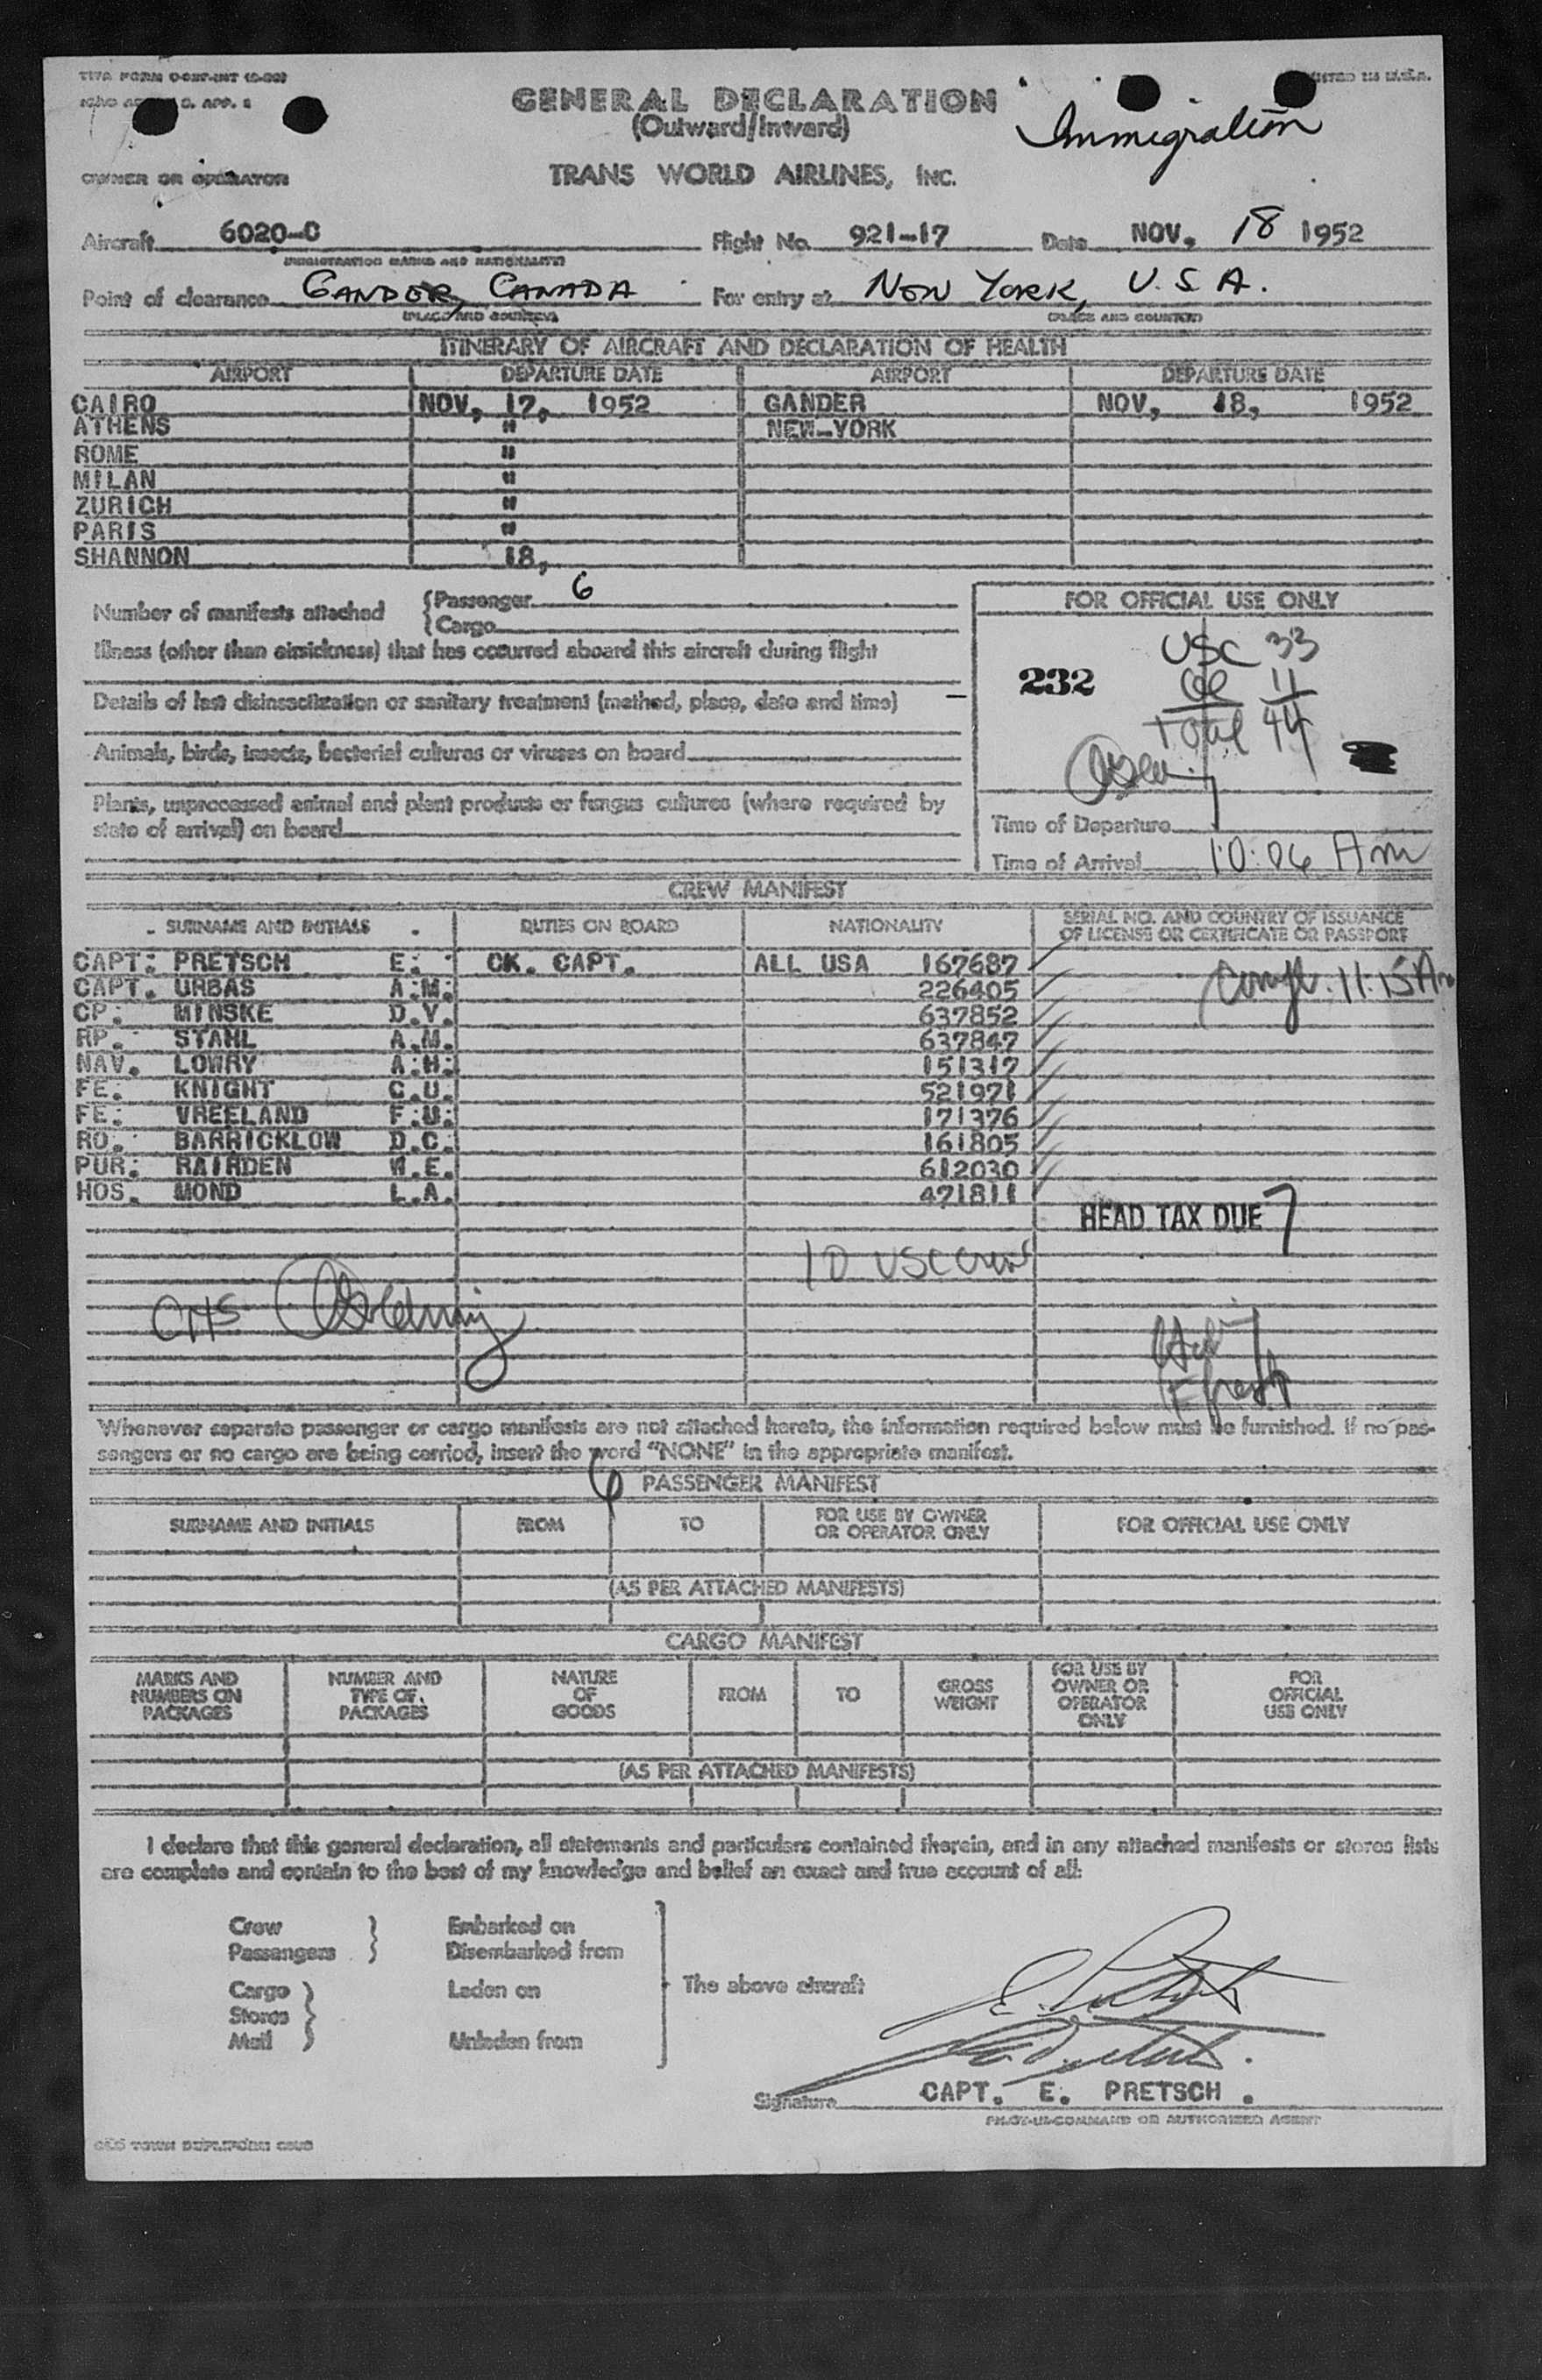 GENERAL DECLARATION
(Outward/Inward)
Immigration
OWNER OR OPERATOR TRANS WORLD AIRLINES, INC.
Aircraft 6020-C Flight No. 921-17 Date NOV, 18 1952
(REGISTRATION MARKS AND NATIONALITY)
Point of clearance GANDER, CANADA For entry at NEW YORK, U.S.A.
(PLACE AND COUNTRY) (PLACE AND COUNTRY)
ITINERARY OF AIRCRAFT AND DECLARATION OF HEALTH
AIRPORT DEPARTURE DATE AIRPORT DEPARTURE DATE
CAIRO NOV, 17, 1952 GANDER NOV, 18, 1952
ATHENS " NEW-YORK
ROME "
MILAN "
ZURICH "
PARIS "
SHANNON 18,
Number of manifests attached {Passenger 6
{Cargo
Illness (other than airsickness) that has occurred aboard this aircraft during flight
Details of last disinsectization or sanitary treatment (method, place, date and time) —
Animals, birds, insects, bacterial cultures or viruses on board
Plants, unprocessed animal and plant products or fungus cultures (where required by
state of arrival) on board
FOR OFFICIAL USE ONLY
USC 33
232 11
Total 44
Time of Departure
Time of Arrival 10:06 Am
CREW MANIFEST
SURNAME AND INITIALS DUTIES ON BOARD NATIONALITY SERIAL NO. AND COUNTRY OF ISSUANCE
OF LICENSE OR CERTIFICATE OR PASSPORT
CAPT: PRETSCH E: CK. CAPT. ALL USA 167687
CAPT. URBAS A.M: 226405
CP: MINSKE D.V. 637852
RP. STAHL A.M. 637847
NAV. LOWRY A.H: 151317
FE: KNIGHT C.U. 521971
FE: VREELAND F.U: 171376
RO. BARRICKLOW D.C: 161805
PUR: RAIRDEN W.E. 612030
HOS. MOND L.A. 471811
Compl. 11:15 Am
HEAD TAX DUE 7
10 USC Crew
Whenever separate passenger or cargo manifests are not attached hereto, the information required below must be furnished. If no pas-
sengers or no cargo are being carried, insert the word "NONE" in the appropriate manifest.
6 PASSENGER MANIFEST
SURNAME AND INITIALS FROM TO FOR USE BY OWNER
OR OPERATOR ONLY FOR OFFICIAL USE ONLY
(AS PER ATTACHED MANIFESTS)
CARGO MANIFEST
MARKS AND
NUMBERS ON
PACKAGES NUMBER AND
TYPE OF
PACKAGES NATURE
OF
GOODS FROM TO GROSS
WEIGHT FOR USE BY
OWNER OR
OPERATOR
ONLY FOR
OFFICIAL
USE ONLY
(AS PER ATTACHED MANIFESTS)
I declare that this general declaration, all statements and particulars contained therein, and in any attached manifests or stores lists
are complete and contain to the best of my knowledge and belief an exact and true account of all:
Crew } Embarked on
Passengers } Disembarked from
Cargo } Laden on The above aircraft
Stores }
Mail } Unladen from
Signature CAPT. E. PRETSCH .
PILOT-IN-COMMAND OR AUTHORIZED AGENT